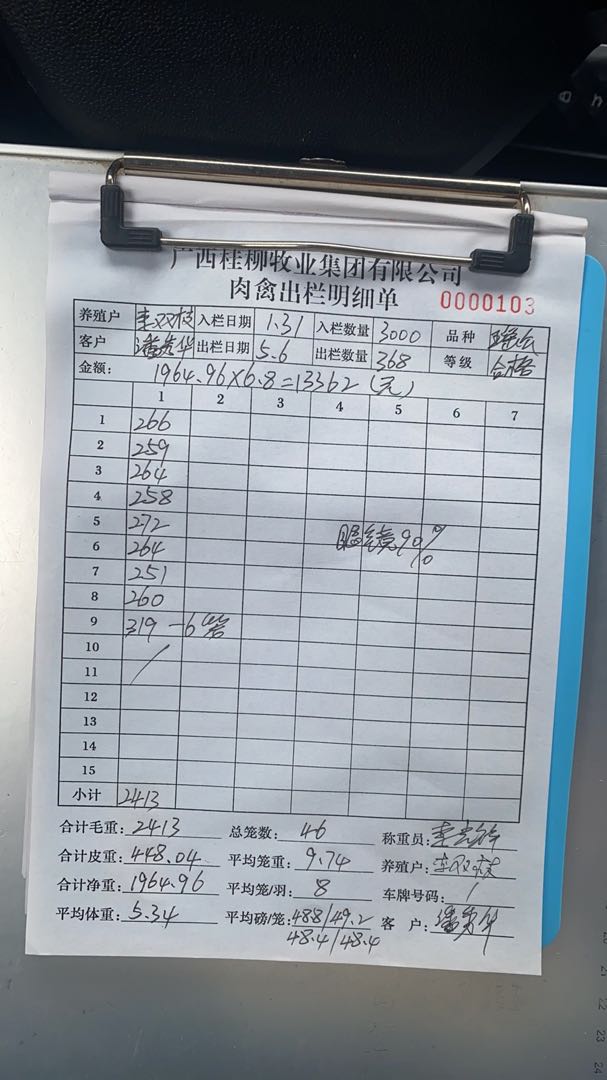 广西桂柳牧业集团有限公司
肉禽出栏明细单 0000103
养殖户 李双枝 入栏日期 1.31 入栏数量 3000 品种
客户 潘秀华 出栏日期 5.6 出栏数量 368 等级 合格
金额: 1964.96×6.8=13362(元)
1 2 3 4 5 6 7
1 266
2 259
3 264
4 258
5 272
6 264
7 251
8 260
9 319 -6笼
90%
10
11
12
13
14
15
小计 2413
合计毛重: 2413 总笼数: 46 称重员:
合计皮重: 448.04 平均笼重: 9.74 养殖户: 李双枝
合计净重: 1964.96 平均笼/羽: 8 车牌号码: /
平均体重: 5.34 平均磅/笼: 488/49.2 客 户: 潘秀华
48.4/48.4
n
22
23
24